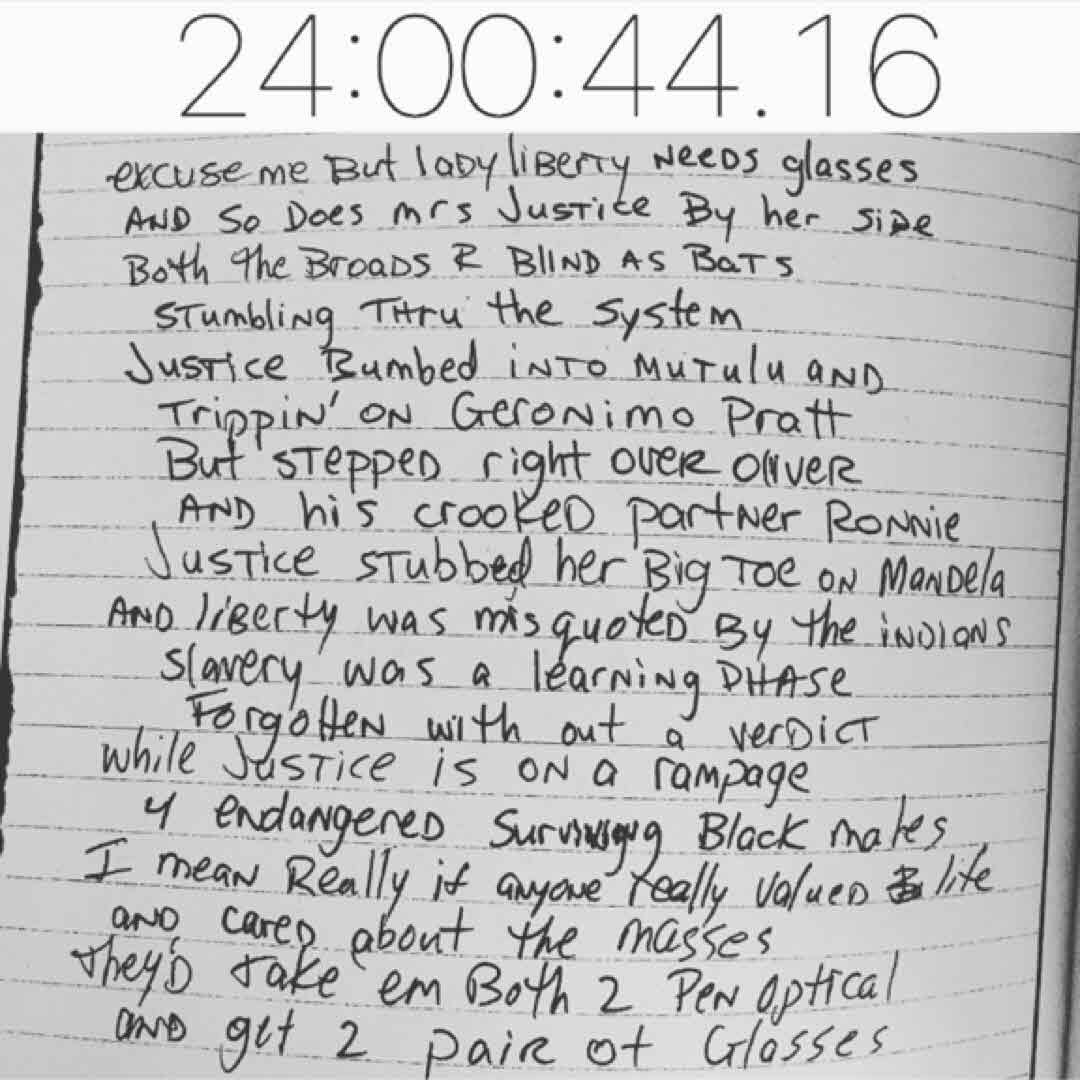 24:00:44.16
excuse me But lady liberty needs glasses
AND So Does mrs Justice By her side
Both the Broads R BLIND AS BATS
stumbling Thru the system
Justice Bumbed into Mutulu and
Trippin' on Geronimo Pratt
But stepped right over Oliver
AND his crooked partner Ronnie
Justice stubbed her Big Toe on Mandela
AND liberty was misquoted By the indians
Slavery was a learning phase
Forgotten with out a verdict
while Justice is on a rampage
4 endangered Surviving Black males
I mean Really if anyone really valued life
and cared about the masses
they'd take em Both 2 Pen Optical
and get 2 pair of Glasses